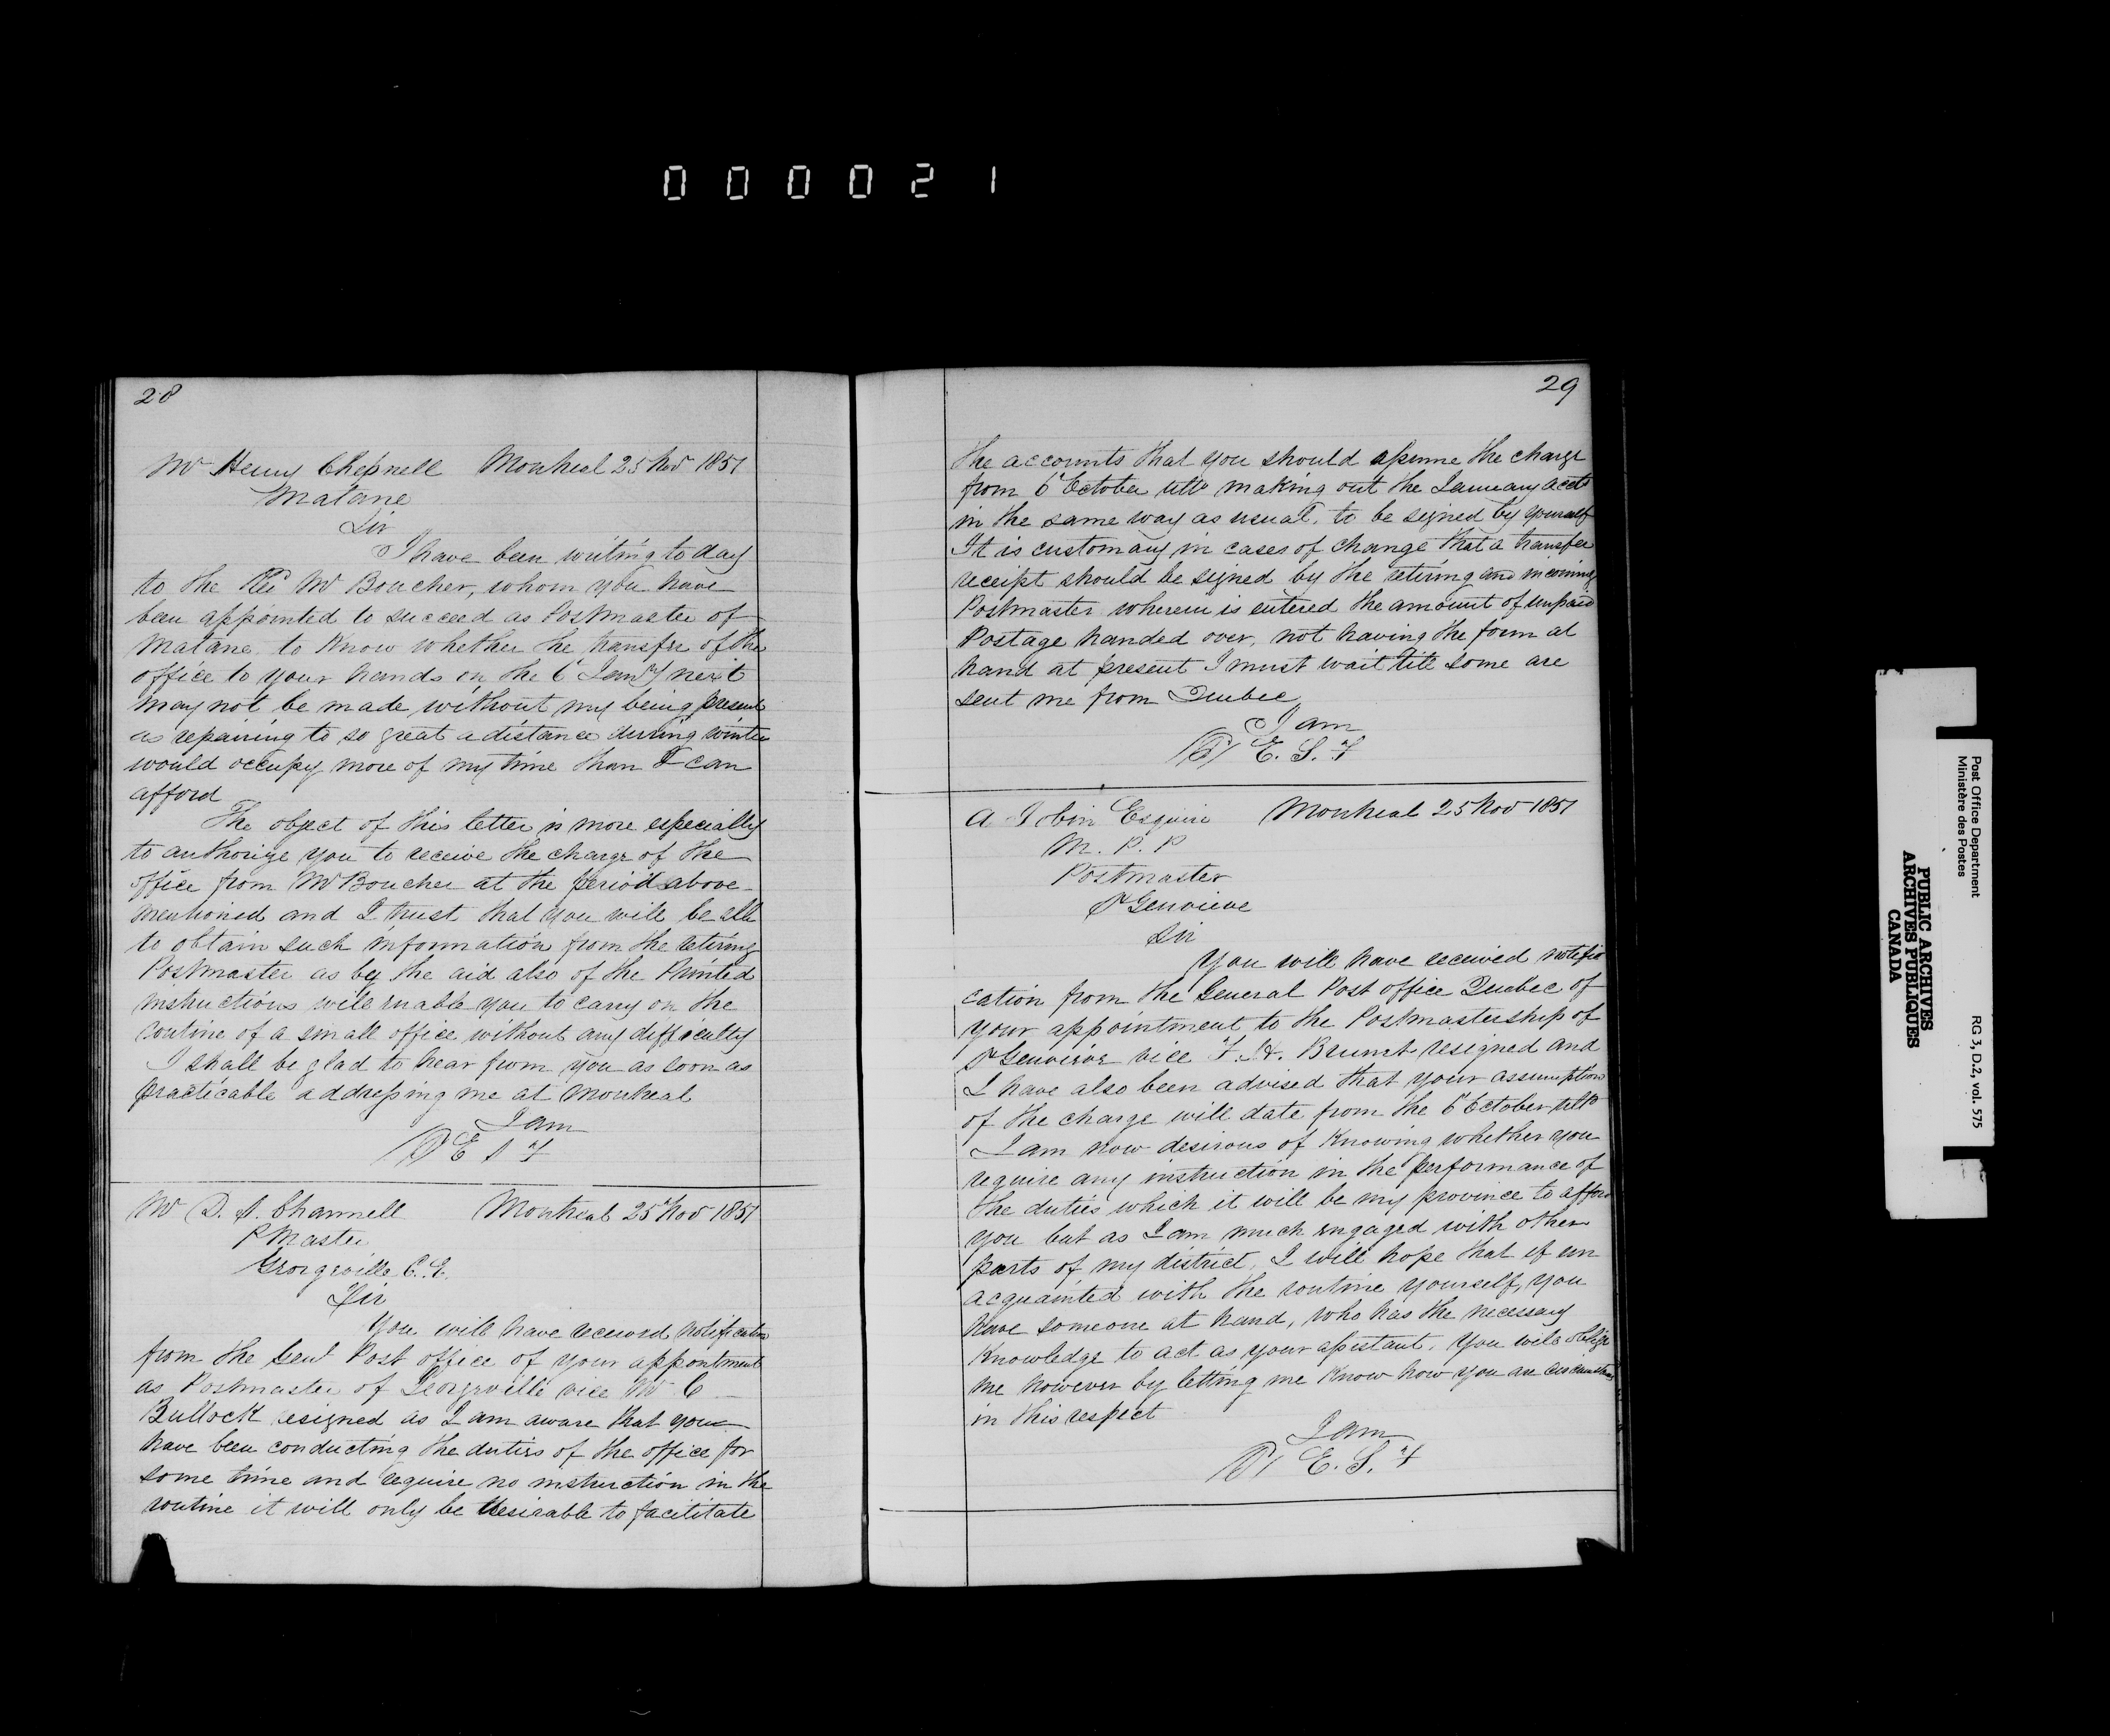 000021
28
Mr Henry Chessnell Montreal 25 Nov 1851
Matane
Sir
I have been writing to day
to the Mr Boucher, whom you have
been appointed to succeed as Postmaster of
Matane, to know whether the transfer of the
office to your hands on the 6th Jany next
may not be made without my being present
as repairing to so great a distance during winter
would occupy more of my time than I can
afford
The object of this letter is more especially
to authorize you to receive the charge of the
office from Mr Boucher at the period above
mentioned and I trust that you will be able
to obtain such information from the retiring
Postmaster as by the aid also of the Printed
instructions will enable you to carry on the
routine of a small office without any difficulty
I shall be glad to hear from you as soon as
practicable addressing me at Montreal
I am
E S F
Mr D. A. Channell Montreal 25th Nov 1851
P Master
Georgeville C.E.
Sir
You will have received notification
from the Genl Post office of your appointment
as Postmaster of Georgeville vice Mr C
Bullock resigned as I am aware that you
have been conducting the duties of the office for
some time and require no instruction in the
routine it will only be desirable to facilitate
29
the accounts that you should assume the charge
from 6th October ulto making out the January acct
in the same way as usual, to be signed by yourself
It is customary in cases of change that a transfer
receipt should be signed by the retiring and incoming
Postmaster wherein is entered the amount of unpaid
Postage handed over, not having the form at
hand at present I must wait till some are
sent me from Quebec
I am
E. S. F
A Jobin Esquire Montreal 25 Nov 1851
M. P. P
Postmaster
St Genvieve
Sir
You will have received notifi
cation from the General Post office Quebec of
your appointment to the Postmastership of
St Genvieve vice F. H. Brunet resigned and
I have also been advised that your assumption
of the charge will date from the 6th October ulto
I am now desirous of knowing whether you
require any instruction in the performance of
the duties which it will be my province to afford
you but as I am much engaged with other
parts of my district, I will hope that if un
acquainted with the routine yourself, you
have someone at hand, who has the necessary
knowledge to act as your assistant. You will oblige
me however by letting me know how you are circumstanced
in this respect
I am
E. S. F
Post Office Department RG 3, D.2, vol. 575
Ministère des Postes
PUBLIC ARCHIVES
ARCHIVES PUBLIQUES
CANADA